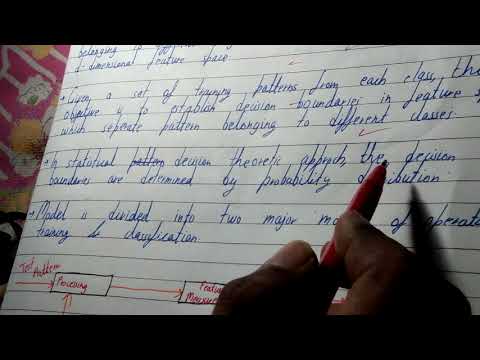 belonging
d-dimensional feature space
→ Given a set of training patterns from each class, the
objective is to establish decision boundaries in feature
which seperate pattern belonging to different classes.
→ In statistical pattern decision theoretic approch the decision
boundaries are determined by probability
→ Model is divided into two major of
training & classification.
Test Pattern
Processing